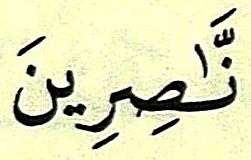 نَّـٰصِرِينَ